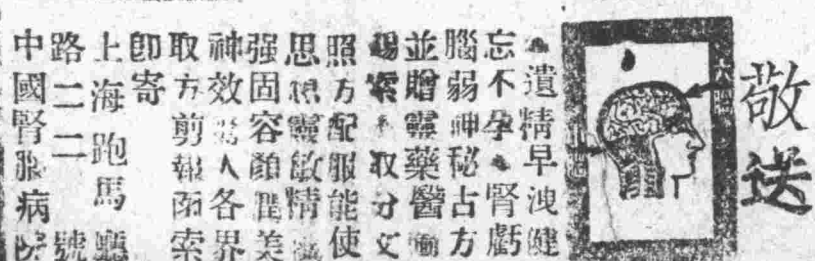 敬送
遺精早洩健
忘不孕腎虧
腦弱神秘古方
並贈靈藥醫
取分文
照方配服能使
思靈敏精
强固容顏美
神效驚人各界
取方剪報函索
卽寄
上海跑馬廳
路二二號
中國腎腦病院